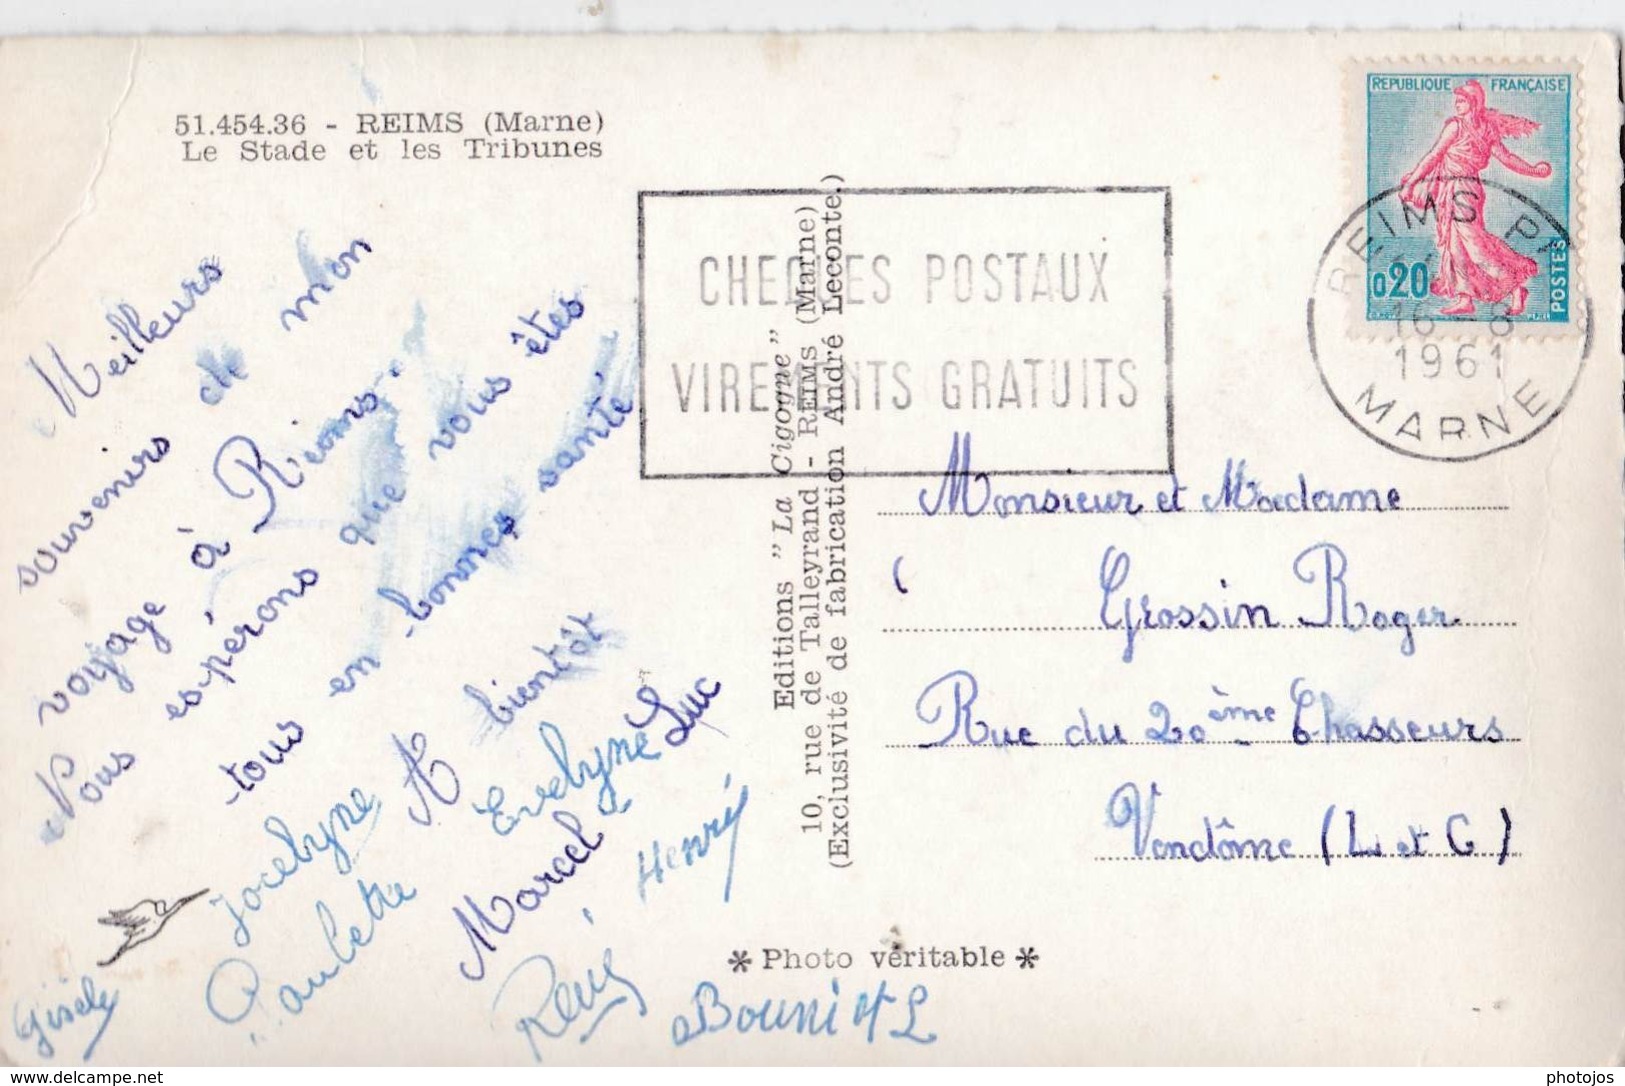 51.454.36 - REIMS (Marne)
Le Stade et les Tribunes
Meilleurs
souvenirs de mon
voyage à Reims.
Nous espérons que vous êtes
tous en bonnes santé.
A bientôt
Luc
Evelyne
Jocelyne
Marcel
Henri
Paulette
René
Gisèle
Editions "La Cigogne"
10, rue de Talleyrand - REIMS (Marne)
(Exclusivité de fabrication André Leconte.)
* Photo véritable *
CHEQUES POSTAUX
VIREMENTS GRATUITS
REPUBLIQUE FRANÇAISE
0,20
POSTES
REIMS
16 - 8
1961
MARNE
Monsieur et Madame
Grossin Roger
Rue du 20ème Chasseurs
Vendôme (L et C)
photojos
www.delcampe.net